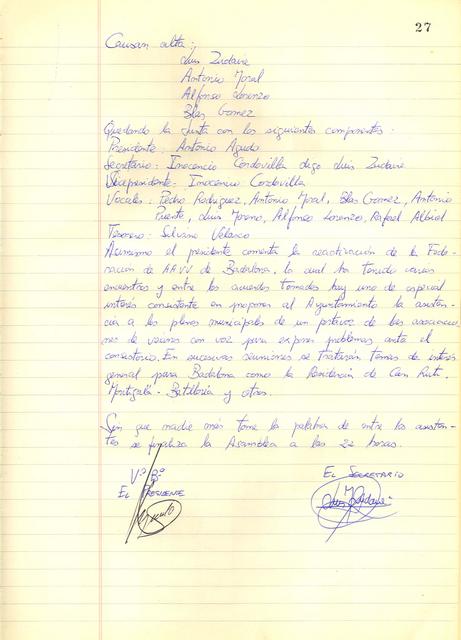 27
Causan alta:
Luis Zudaire
Antonio Moral
Alfonso Lorenzo
Blas Gomez
Quedando la Junta con los siguientes componentes:
Presidente: Antonio Agudo
Secretario: Inocencio Cordovilla digo Luis Zudaire
Vicepresidente- Inocencio Cordovilla
Vocales: Pedro Rodriguez, Antonio Moral, Blas Gomez, Antonio
Puente, Luis Moreno, Alfonso Lorenzo, Rafael Albiol
Tesorero: Silvino Velasco
Asimismo el presidente comenta la reactivación de la Fede-
ración de AAVV de Badalona, la cual ha tenido varios
encuentros y entre los acuerdos tomados hay uno de especial
interés consistente en proponer al Ayuntamiento la asisten-
cia a los plenos municipales de un portavoz de las asociacio
nes de vecinos con voz para exponer problemas ante el
consistorio. En sucesivas reuniones se tratarán temas de interés
general para Badalona como la Residencia de Can Ruti-
Montigalà- Batllòria y otros.
Sin que nadie más tome la palabra de entre los asisten-
tes se finaliza la Asamblea a las 22 horas.
Vº Bº
EL PRESIDENTE
EL SECRETARIO